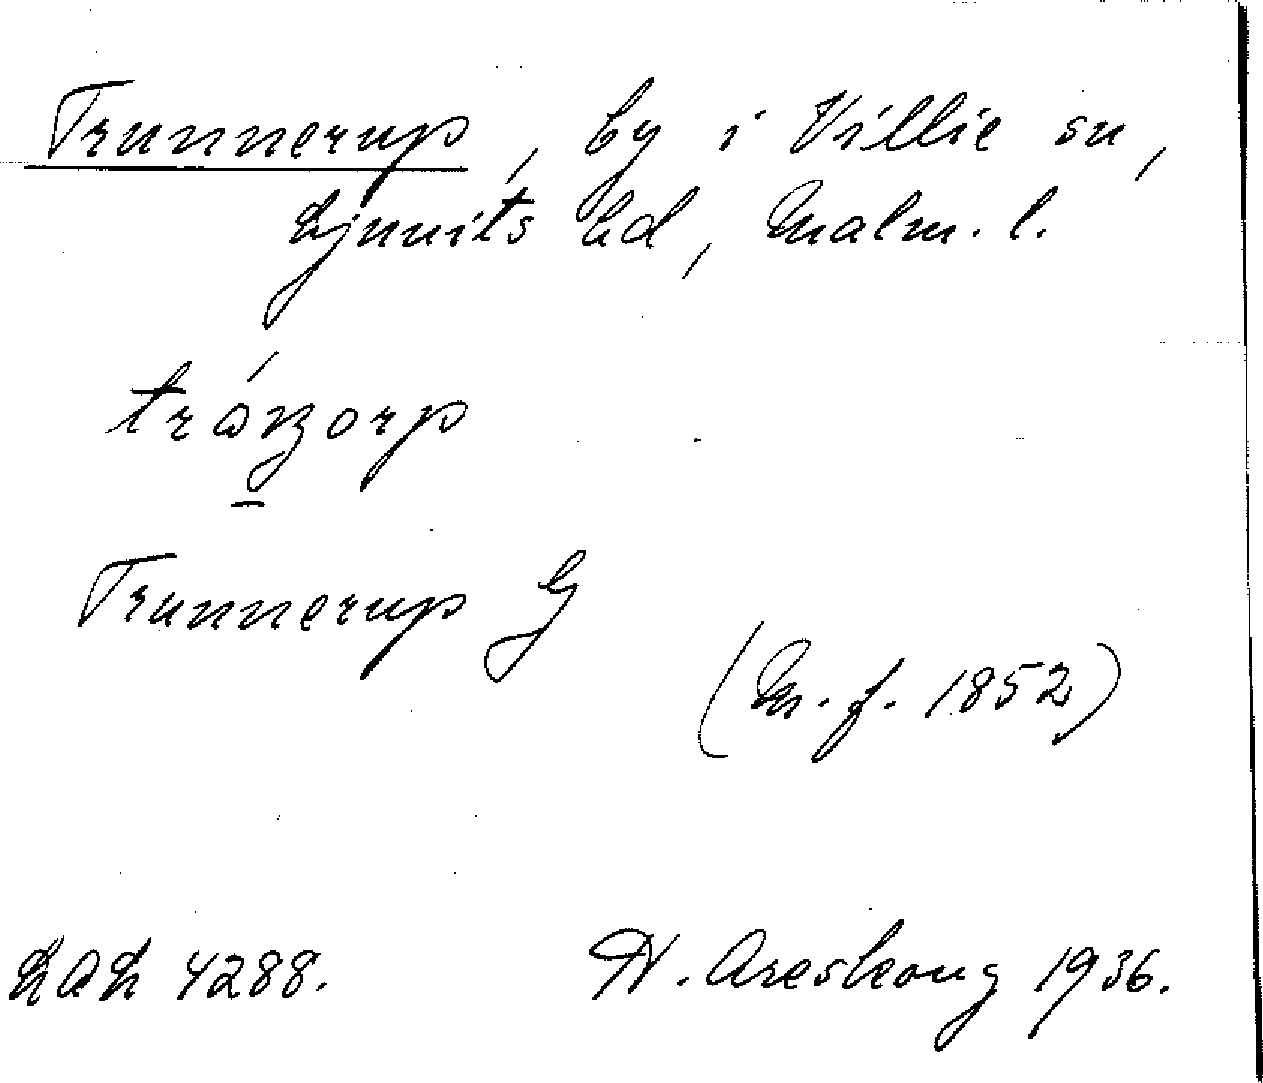 Trunnerup, by i Villie sn,
Ljunits hd, Malm. l.
Trunnerup G
(M. f. 1852)
LAL 4288. H. Areskoug 1936.